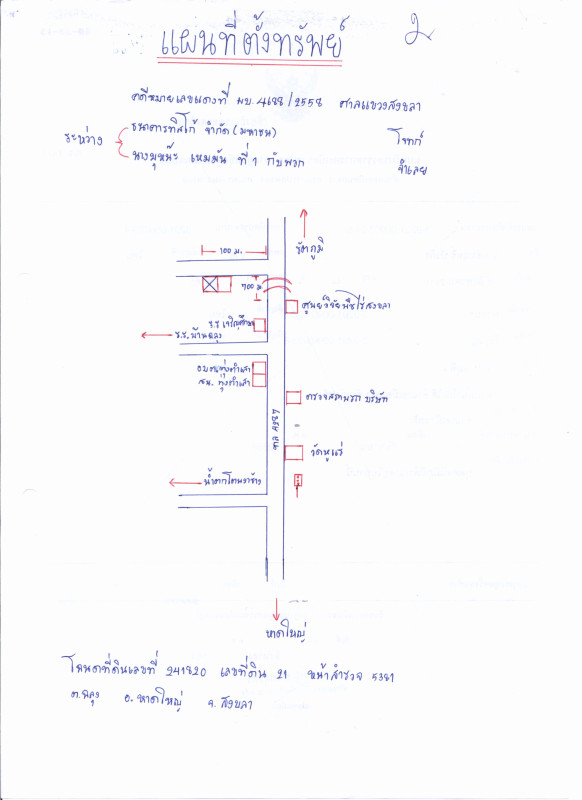 แผนที่ตั้งทรัพย์
2
คดีหมายเลขแดงที่ ผบ.4688/2558 ศาลแขวงสงขลา
ระหว่าง
ธนาคารทิสโก้ จำกัด (มหาชน) โจทก์
นางมุหน๊ะ เหมมัน ที่ 1 กับพวก จำเลย
รัตภูมิ
100 ม.
700 ม
ศูนย์วิจัยพืชไร่สงขลา
ร.ร เจริญศึกษา
ร.ร.บ้านฉลุง
อบต.ทุ่งตำเสา
สน. ทุ่งตำเสา
ตรวจสภาพรถ บริษัท
วัดหูแร่
น้ำตกโตนงาช้าง
หาดใหญ่
โฉนดที่ดินเลขที่ 241820 เลขที่ดิน 21 หน้าสำรวจ 5381
ต.ฉลุง อ.หาดใหญ่ จ.สงขลา